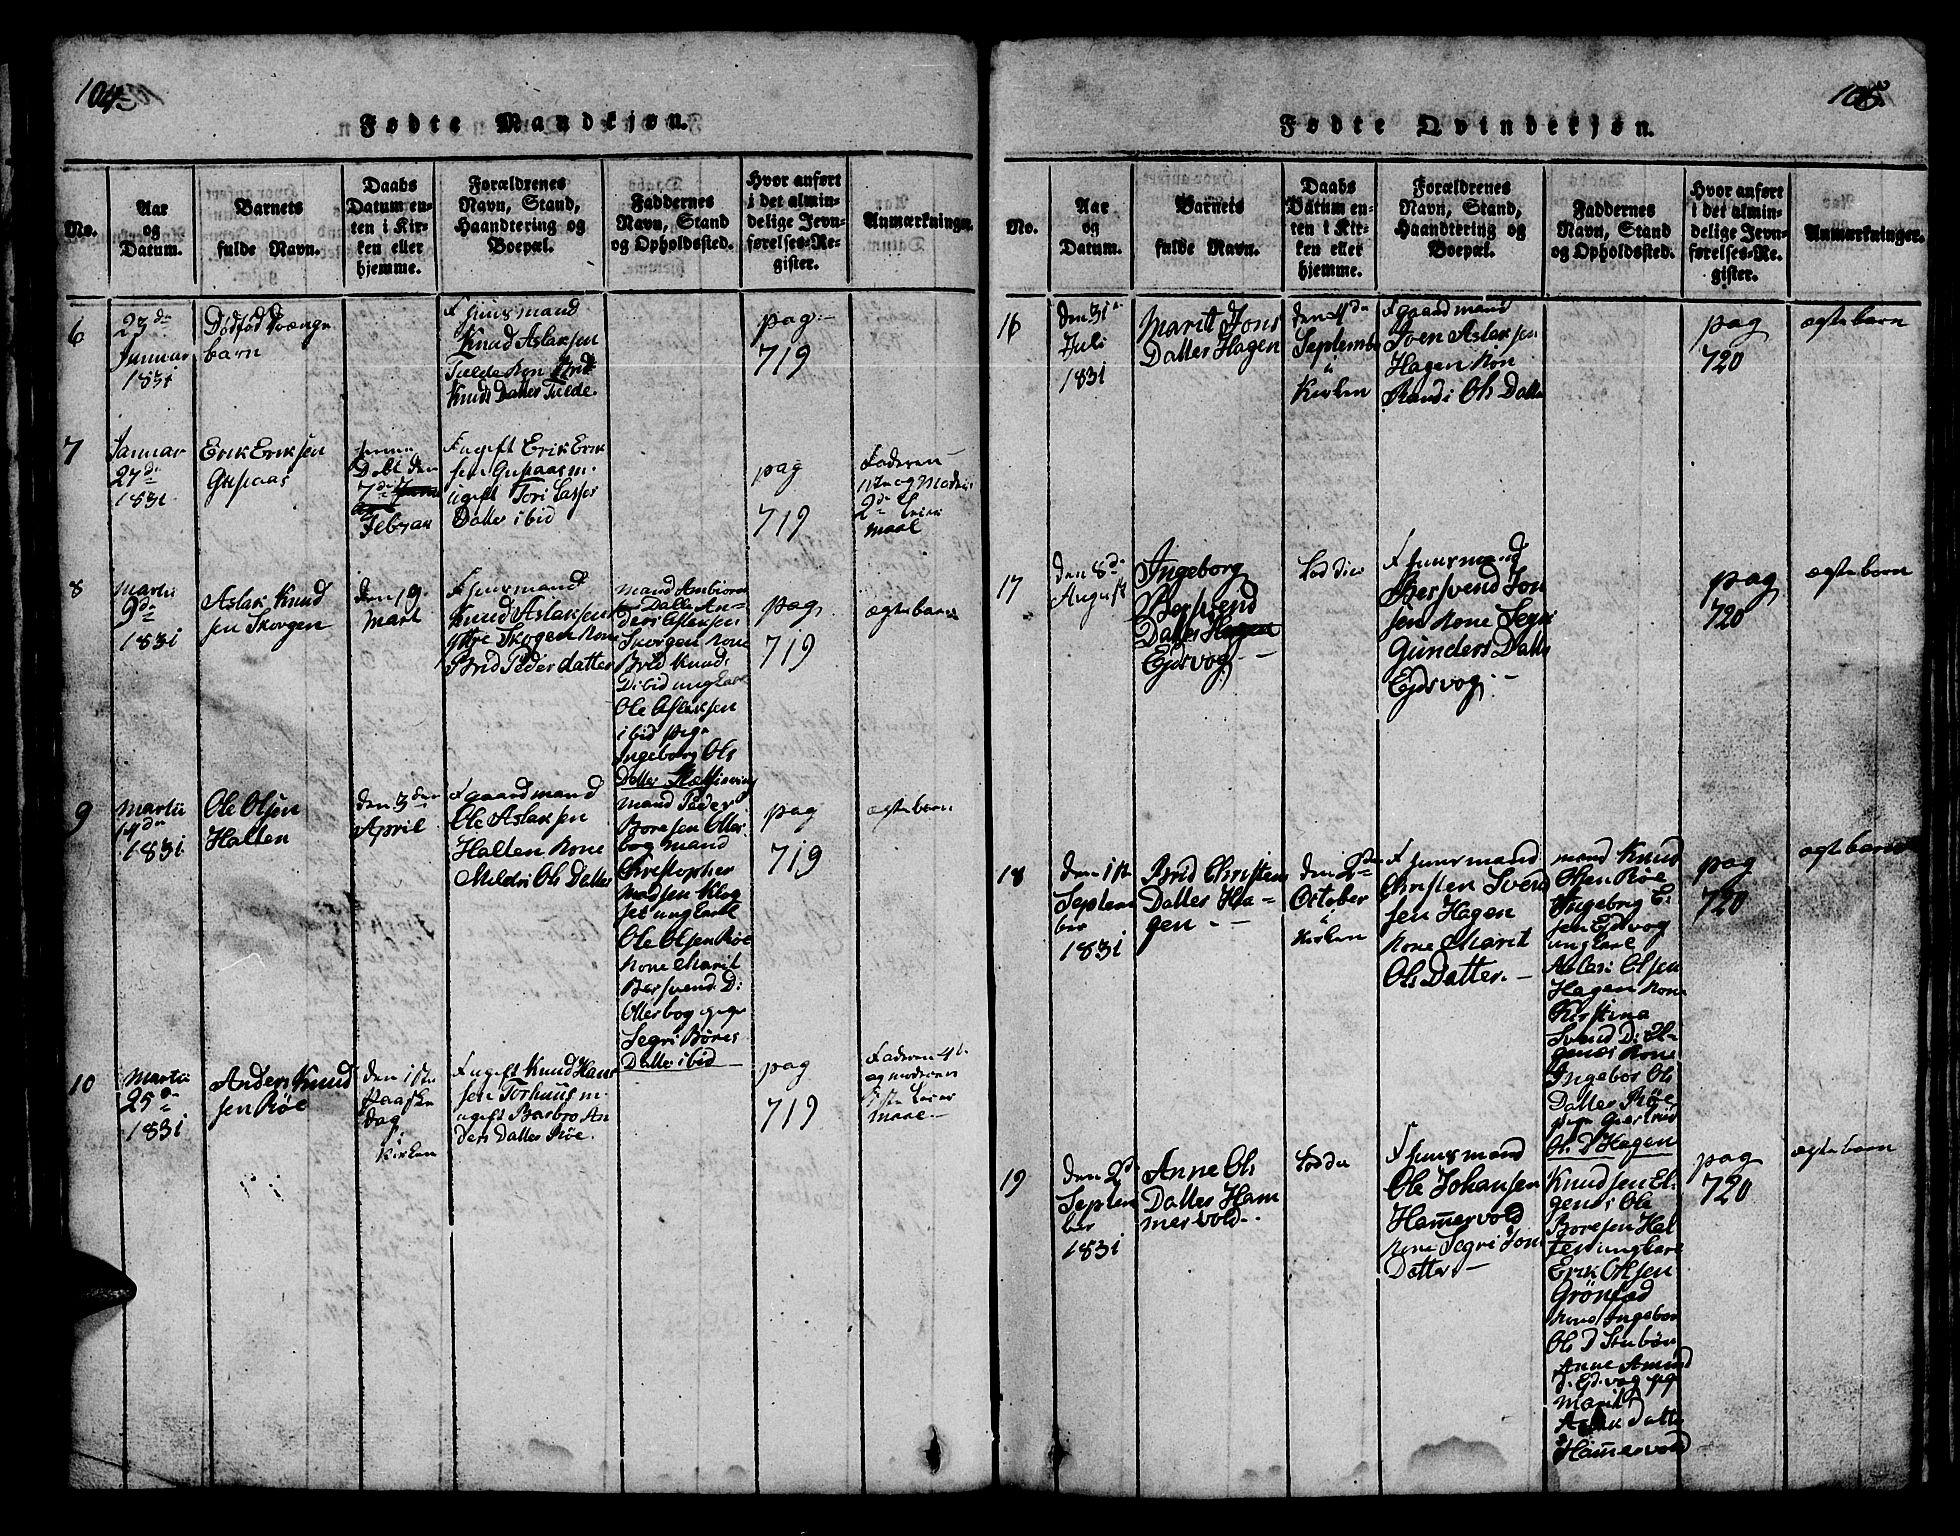 104.
Fødte Mandkjøn.
No.
Aar
og
Datum.
Barnets
fulde Navn.
Daabs
Datum en-
ten i Kir-
ken eller
hjemme.
Forældrenes
Navn, Stand,
Haandtering og
Boepæl.
Faddernes
Navn, Stand
og Opholdssted.
Hvor anført
i det almin-
delige Jevn-
førelses-Re-
gister.
Anmærkninger.
6
23de
Januar
1831
Dødfød Drænge
barn
F huusmand
Knud Aslaksen
Tielde Kon Brit
Knuds Datter Tielde.
pag.
719
7
Januar
27de
1831
Erik Eriksen
Gusiaas
Døbt den
7de
Februar
F ugift Erik Erik
sen Gusiaas m.
ugift Tori Lasses
Datter ibid
pag
719
Faderen
11te og Modrens
2de Leier
maal
8
Martii
9de
1831
Aslak Knud
sen Skorgen
den 19
Mart
F huusmand
Knud Aslaksen
Skogen Kone
Brid Peder datter
mand Anbiørn
Datter An-
ders Aslaksen
Skorgen Kone
Brid Knuds
D ibid ungkarl
Ole Aslaksen
ibid pige
Ingeborg Ols
Datter
pag.
719
ægte barn
9
Martii
14de
1831
Ole Olsen
Halten
den 3den
April
F gaardmand
Ole Aslaksen
Halten Kone
Mildri Ols Datter
mand Peder
Boresen Otter
bog mand
Christopher
Madsen Klog
set ungkarl
Ole Olsen Røe
Kone Marit
Bersvend D:
Otterbog pige
Segri Børes
Datter ibid
pag
719
ægte barn
10
Martii
25de
1831
Anders Knud
sen Røe
den 1ste
Paaske
dag
Kirken
F ugift Knud Hans
sen Torhuus m.
ugift Barbro An
ders Datter Røe.
pag
719
Faderen 4de
og moderens
1ste Leier
maal
105.
Fødte Qvindekjøn.
No.
Aar
og
Datum.
Barnets
fulde Navn.
Daabs
Datum en-
ten i Kir-
ken eller
hjemme.
Forældrenes
Navn, Stand,
Haandtering og
Boepæl.
Faddernes
Navn, Stand
og Opholdssted.
Hvor anført
i det almin-
delige Jevn-
førelses-Re-
gister.
Anmærkninger.
16
den 31te
Juli
1831
Marit Jons
Datter Hagen
den 4de
Septembr
i
Kirken
F gaardmand
Joen Aslaksen
Hagen Kon
Randi Ols Datter
pag
720
ægte barn
17
den 8de
August
Ingeborg
Bersvend
Datter Hagen
Ejdsvog.
F huusmand
Bersvend Jon
sen Kone Segri
Gunders Datter
Ejdsvog.
pag
720
ægte barn
18
den 1ste
Septem
ber
1831
Brid Christens
Datter Ha-
gen.
den 2den
October
i
Kirken
F huusmand
Christen Svend
sen Hagen
Kone Marit
Ols Datter.
mand Knud
Olsen Røe
Ingebrig E:
sen Ejdsvog
ungkarl
Aslak Olsen
Hagen Kone
Kirstina
Svend D: El-
genæs Kone
Ingebor Ols
Datter Røe
pige Giertrud
Ols D Hagen
pag
720
ægte barn
19
den 2d
Septem
ber
1831
Anne Ols
Datter Ham
mervold.
F huusmand
Ole Johansen
Hamervold
Kone Segri Jons
Datter
Knudsen El-
genæs Ole
Boresen Hal
ten ungkarl
Erik Olsen
Grönfæd
Kone Ingebor
Ols D Stubøn
Anne Amund
D. Ejdsvog pge
Marit
Datter
Hamervold
pag
720
ægte barn